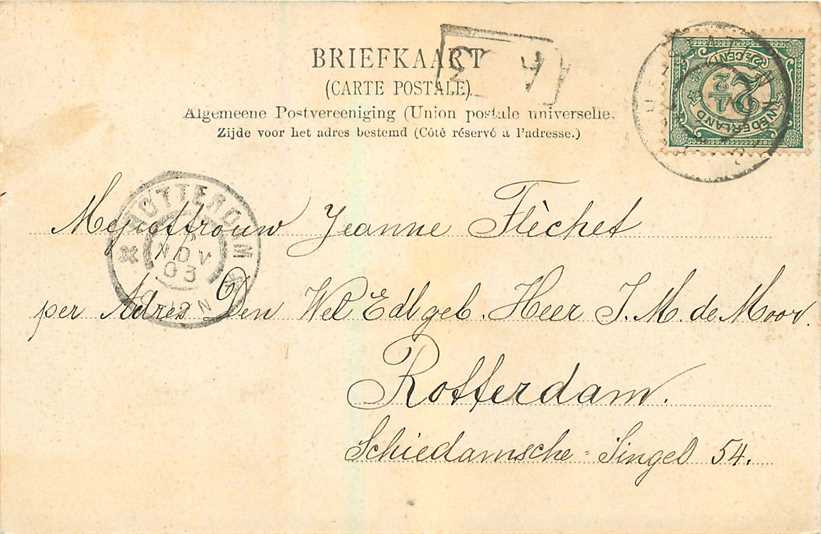 BRIEFKAART
(CARTE POSTALE)
Algemeene Postvereeniging (Union postale universelle.
Zijde voor het adres bestemd (Côté réservé à l'adresse.)
NEDERLAND
2 1/2
CENT
ROTTERDAM
NOV
03
12 N
Mejuffrouw Jeanne Flèchet
per Adres Den Wel Edlgeb. Heer J. M. de Moor.
Rotterdam.
Schiedamsche Singel 54.